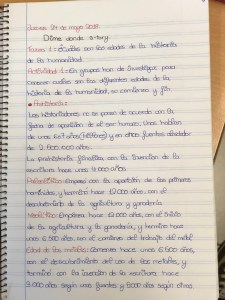 Jueves 24 de mayo 2018
Dime donde story:
Tarea 1: ¿Cuáles son las edades de la historia
de la humanidad.
Actividad 1: En grupos han de investigar, para
conocer cuáles son las diferentes edades de la
historia de la humanidad, su comienzo y fin.
Prehistoria:
Los historiadores no se ponen de acuerdo con la
fecha de aparición de el ser humano. Unos hablan
de unos y en otras fuentes alrededor
de 2.500.000 años.
La prehistoria finaliza con la invención de la
escritura hace unos 4.000 años.
Paleolítico: Empezó con la aparición de los primeros
homínidos, y terminó hace 12.000 años, con el
descubrimiento de la agricultura y ganadería.
Neolítico: Empezó hace 12.000 años, con el inicio
de la agricultura y la ganadería, y terminó hace
unos 6.500 años, con el comienzo del trabajo del metal.
Edad de los metales: Comenzó hace unos 6.500 años,
con el descubrimiento del uso de los metales, y
terminó con la invención de la escritura, hace
3.000 años según unas fuentes y 5.000 años según otras.